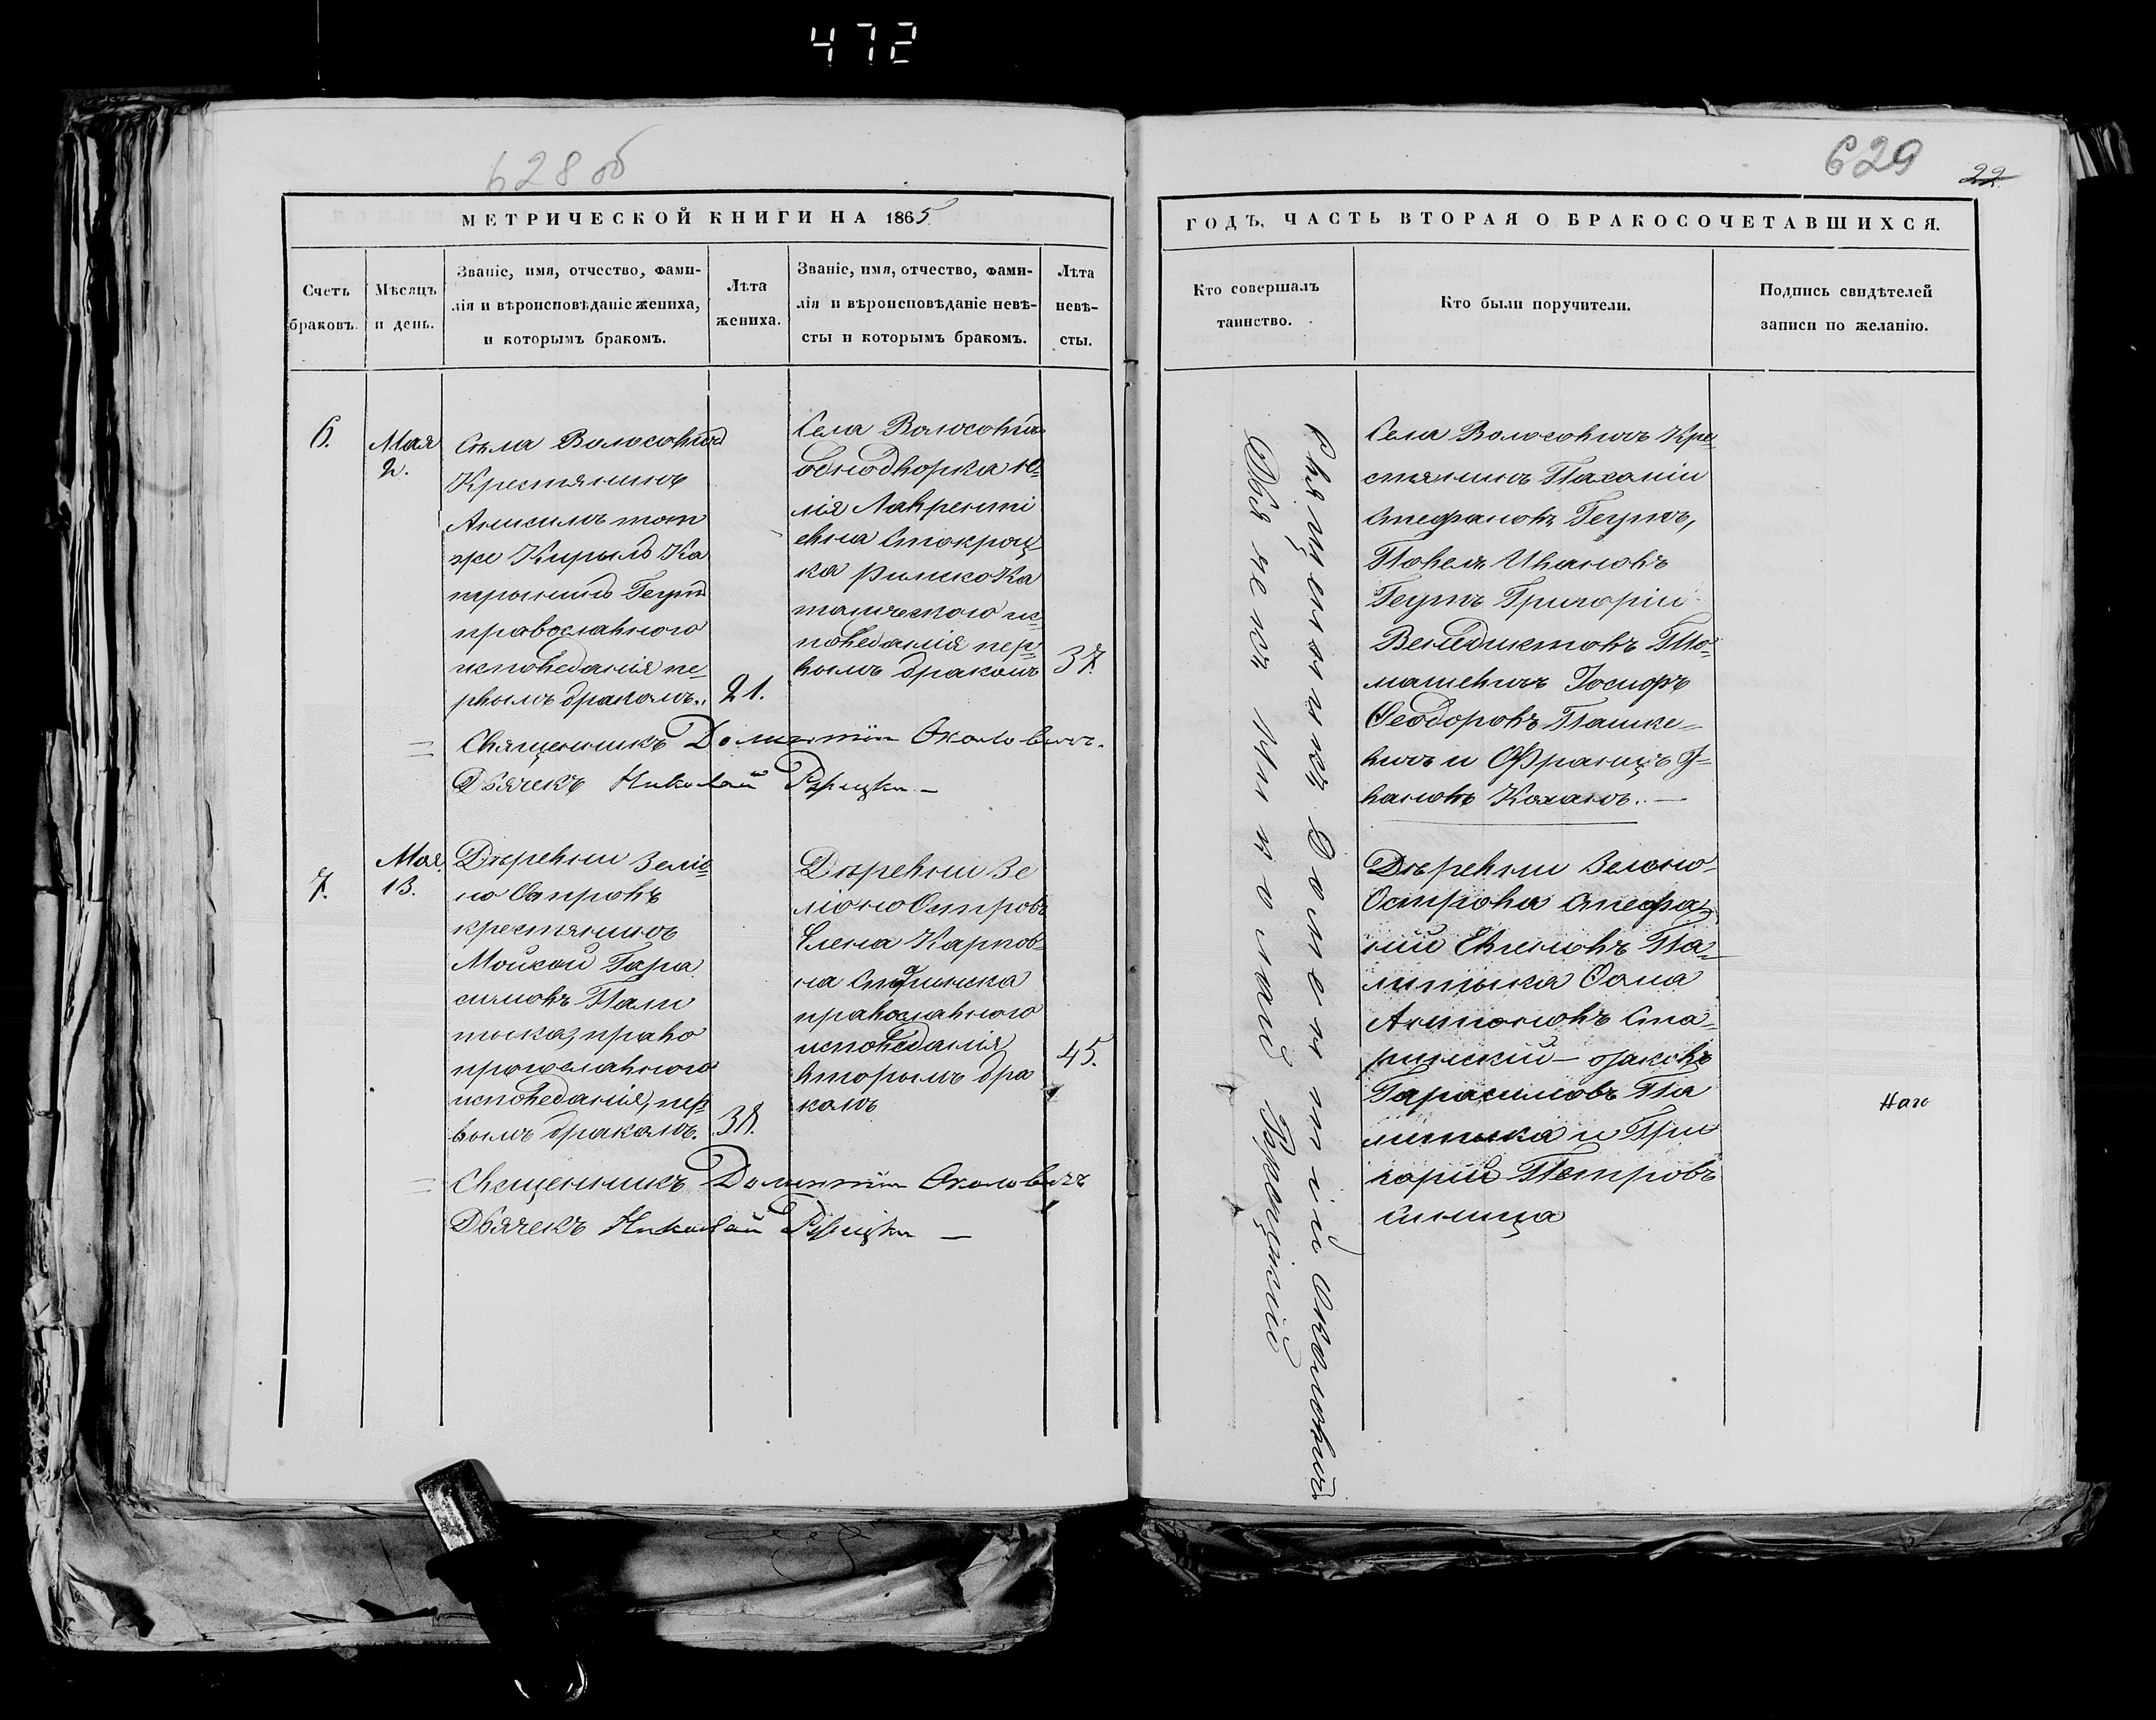 472
628 об
МЕТРИЧЕСКОЙ КНИГИ НА 1865
Счетъ
браковъ.
Мѣсяцъ
и день.
Званіе, имя, отчество, фами-
лія и вѣроисповѣданіе жениха,
и которымъ бракомъ.
Лѣта
жениха.
Званіе, имя, отчество, фами-
лія и вѣроисповѣданіе невѣ-
сты и которымъ бракомъ.
Лѣта
невѣ-
сты.
6.
Мая
2.
Села Волосовичъ
Крестянинъ
Анисимъ тот
же Кирылъ Ка
Геутъ
православного
исповеданія пе-
рвымъ бракомъ.
21.
Села Волосовичъ
однодворка Ю-
лія Лавренті
евна
ка РимскоКа
толического ис-
поведанія пер-
вымъ бракомъ
37.
Священникъ Доментіи Околовичъ.
Дьячекъ Николай
7.
Мая
13.
Деревни Зелю-
но Островъ
крестянинъ
Мойсей Гара
симовъ Пали
тыка, право
прославного
исповеданія, пер-
вымъ бракомъ.
38.
Деревни Зе
люно Островъ
Елена Карпов-
на
православного
исповеданія
вторымъ бра
комъ
45.
Священникъ Доментіи Околовичъ
Дьячекъ Николай
629
22
ГОДЪ, ЧАСТЬ ВТОРАЯ О БРАКОСОЧЕТАВШИХСЯ.
Кто совершалъ
таинство.
Кто были поручители.
Подпись свидѣтелей
записи по желанію.
Священникъ Доментій Околовичъ
Дьячекъ Николай
Села Волосовичъ Кре-
стянинъ Пахоміи
Стефановъ Геутъ,
Павелъ Ивановъ
Геутъ Григоріи
Венедиктовъ То-
машевичъ Іосифъ
Феодоровъ Пашке-
вичъ и Францъ И-
вановъ Коханъ.
Деревни Зелено-
Острова Стефа-
ній Евгеновъ Па-
литыка Фома
Антоновъ Ста-
ринский Яковъ
Гарасимовъ Па
литыка и Гри
горий Петровъ
Синица